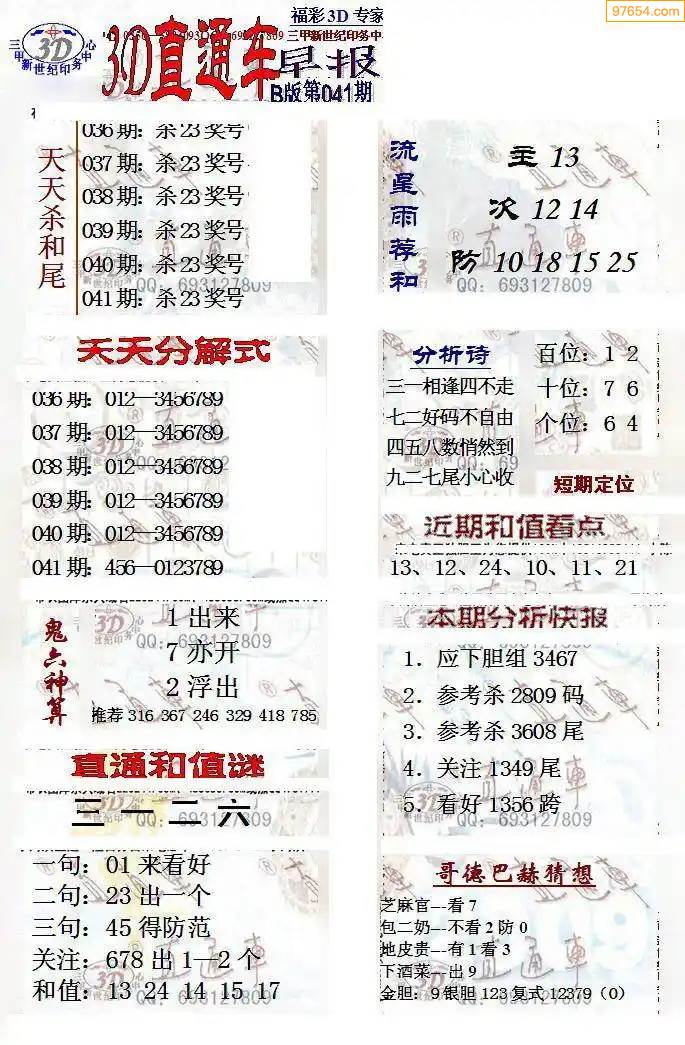 97654.com
福彩3D 专家
三甲新世纪印务中心
3D
三甲新世纪印务中
3D直通车
早报
B版第041期
天天杀和尾
036期：杀23奖号
037期：杀23奖号
038期：杀23奖号
039期：杀23奖号
040期：杀23奖号
041期：杀23奖号
QQ：693127809
流星雨荐和
主 13
次 12 14
防 10 18 15 25
QQ：693127809
天天分解式
036期：012—3456789
037期：012—3456789
038期：012—3456789
039期：012—3456789
040期：012—3456789
041期：456—0123789
分析诗
三一相逢四不走
七二好码不自由
四五八数悄然到
九二七尾小心收
百位：1 2
十位：7 6
个位：6 4
短期定位
近期和值看点
13、12、24、10、11、21
鬼六神算
1出来
QQ：693127809
7亦开
2浮出
推荐 316 367 246 329 418 785
本期分析快报
1．应下胆组3467
2．参考杀2809码
3．参考杀3608尾
4．关注1349尾
5．看好1356跨
QQ：693127809
直通和值谜
三一二六
QQ：693127809
一句：01来看好
二句：23出一个
三句：45得防范
关注：678出1—2个
和值：13 24 14 15 17
QQ：693127809
哥德巴赫猜想
芝麻官---看7
包二奶---不看2防0
地皮贵---有1看3
下酒菜---出9
金胆：9银胆123复式12379（0）
QQ：693127809